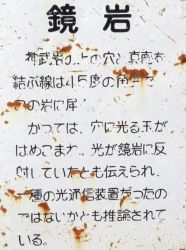 鏡岩
結ぶ線は45度の
の岩に
かつては、穴に光る玉が
はめこまれ、光が鏡岩に反
射していたとも伝えられ、
一種の光通信装置だったの
ではないかとも推論されて
いる。